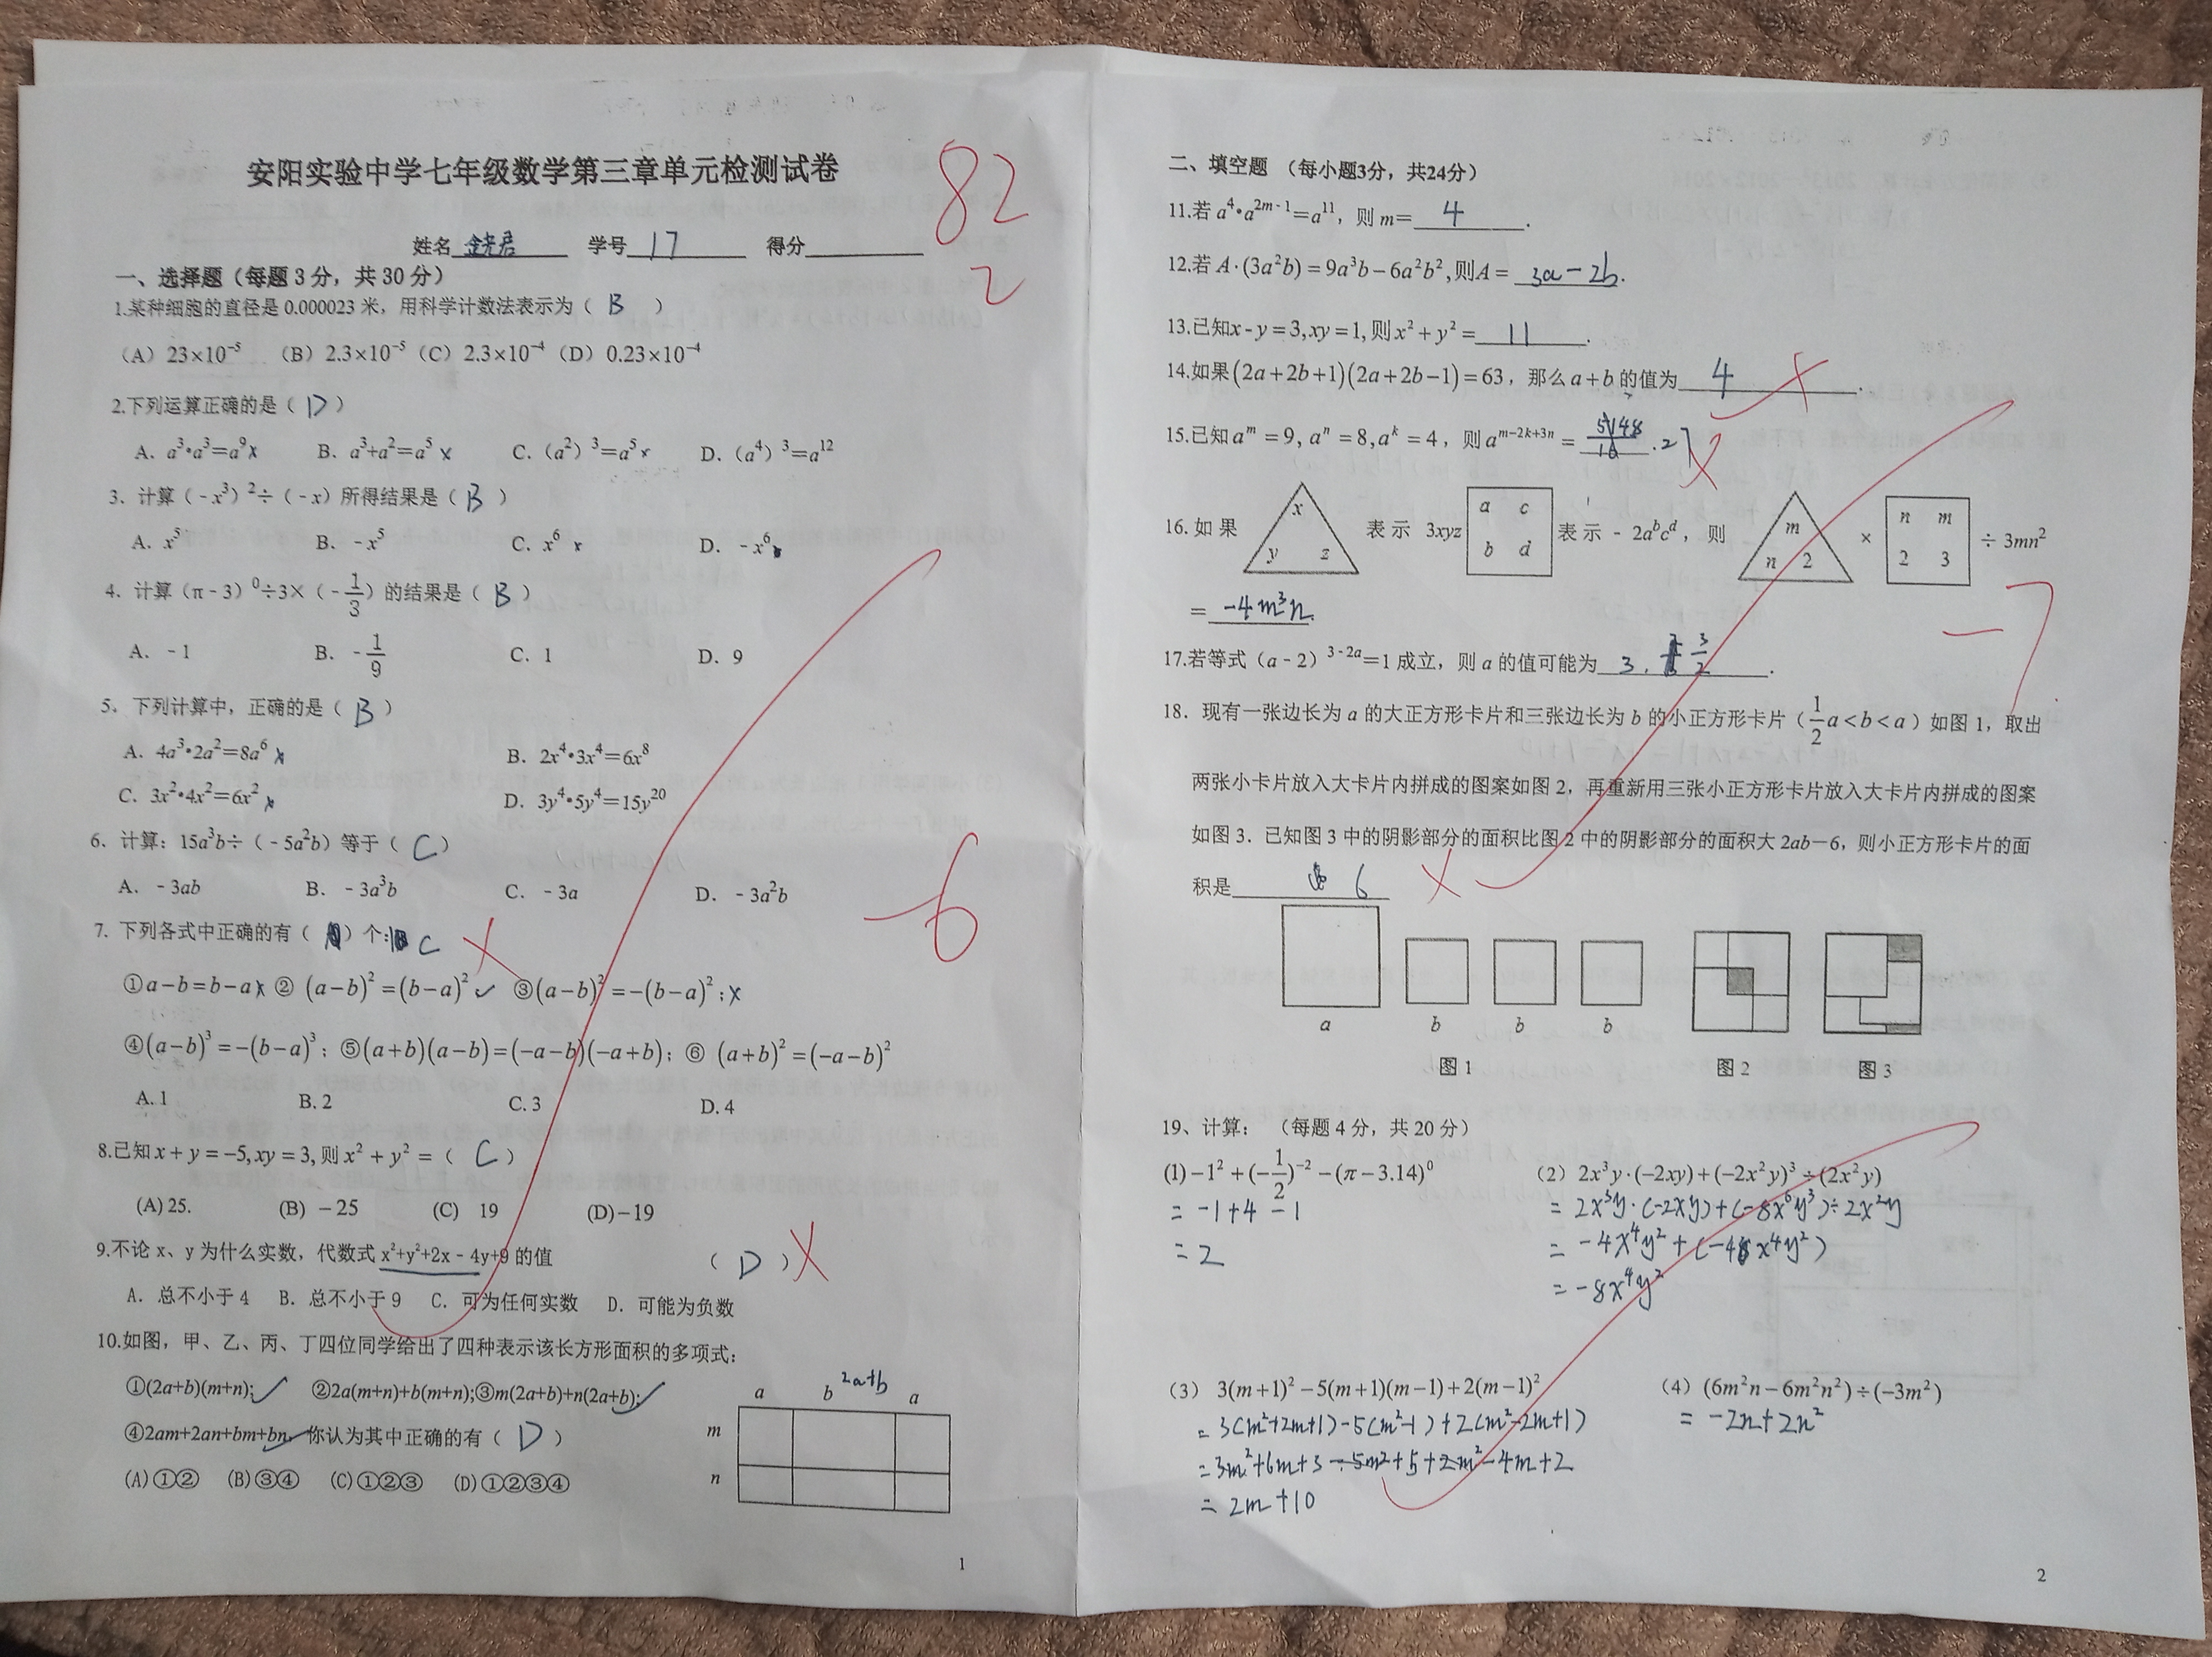 安阳实验中学七年级数学第三章单元检测试卷
82
2
姓名 学号 17 得分
一、选择题（每题 3 分，共 30 分）
1.某种细胞的直径是 0.000023 米，用科学计数法表示为（ B ）
（A）23×10⁻⁵ （B）2.3×10⁻⁵（C）2.3×10⁻⁴（D）0.23×10⁻⁴
2.下列运算正确的是（ D ）
A．a³•a³=a⁹ x B．a³+a²=a⁵ x C．（a²）³=a⁵ x D．（a⁴）³=a¹²
3．计算（-x³）²÷（-x）所得结果是（ B ）
A．x⁵ B．-x⁵ C．x⁶ x D．-x⁶
4．计算（π-3）⁰÷3×（-1/3）的结果是（ B ）
A．-1 B．-1/9 C．1 D．9
5．下列计算中，正确的是（ B ）
A．4a³•2a²=8a⁶ x B．2x⁴•3x⁴=6x⁸
C．3x²•4x²=6x² x D．3y⁴•5y⁴=15y²⁰
6．计算：15a³b÷（-5a²b）等于（ C ）
A．-3ab B．-3a³b C．-3a D．-3a²b
-6
7．下列各式中正确的有（ ）个: C
①a-b=b-a x ② (a-b)²=(b-a)² ✓ ③(a-b)²=-(b-a)²; x
④(a-b)³=-(b-a)³; ⑤(a+b)(a-b)=(-a-b)(-a+b); ⑥ (a+b)²=(-a-b)²
A.1 B.2 C.3 D.4
8.已知x+y=-5,xy=3,则x²+y²=（ C ）
(A) 25. (B) -25 (C) 19 (D) -19
9.不论 x、y 为什么实数，代数式 x²+y²+2x-4y+9 的值 （ D ）
A．总不小于 4 B．总不小于 9 C．可为任何实数 D．可能为负数
10.如图，甲、乙、丙、丁四位同学给出了四种表示该长方形面积的多项式：
①(2a+b)(m+n); ✓ ②2a(m+n)+b(m+n);③m(2a+b)+n(2a+b); ✓
④2am+2an+bm+bn, ✓ 你认为其中正确的有（ D ）
(A)①② (B)③④ (C)①②③ (D)①②③④
2a+b
a b a
m
n
1
二、填空题 （每小题3分，共24分）
11.若 a⁴•a²ᵐ⁻¹=a¹¹，则 m= 4 .
12.若 A·(3a²b)=9a³b-6a²b²,则A= 3a-2b.
13.已知x-y=3,xy=1,则x²+y²= 11 .
14.如果(2a+2b+1)(2a+2b-1)=63，那么a+b的值为 4 .
15.已知 aᵐ=9, aⁿ=8, aᵏ=4，则 aᵐ⁻²ᵏ⁺³ⁿ=
16.如果 x y z 表示 3xyz a c b d 表示 - 2aᵇcᵈ，则 m n 2 × n m 2 3 ÷ 3mn²
= -4m³n.
-7
17.若等式（a-2）³⁻²ᵃ=1 成立，则 a 的值可能为 3. 3/2 .
18．现有一张边长为 a 的大正方形卡片和三张边长为 b 的小正方形卡片（1/2a<b<a）如图 1，取出
两张小卡片放入大卡片内拼成的图案如图 2，再重新用三张小正方形卡片放入大卡片内拼成的图案
如图 3．已知图 3 中的阴影部分的面积比图 2 中的阴影部分的面积大 2ab-6，则小正方形卡片的面
积是 6
a b b b
图 1 图 2 图 3
19、计算：（每题 4 分，共 20 分）
(1) -1²+(-1/2)⁻²-(π-3.14)⁰
= -1+4 -1
= 2
（2）2x³y·(-2xy)+(-2x²y)³÷(2x²y)
= 2x³y·(-2xy)+(-8x⁶y³)÷2x²y
= -4x⁴y²+(-4x⁴y²)
= -8x⁴y²
（3）3(m+1)²-5(m+1)(m-1)+2(m-1)²
= 3(m²+2m+1)-5(m²-1)+2(m²-2m+1)
= 3m²+6m+3-5m²+5+2m²-4m+2
= 2m+10
（4）(6m²n-6m²n²)÷(-3m²)
= -2n+2n²
2